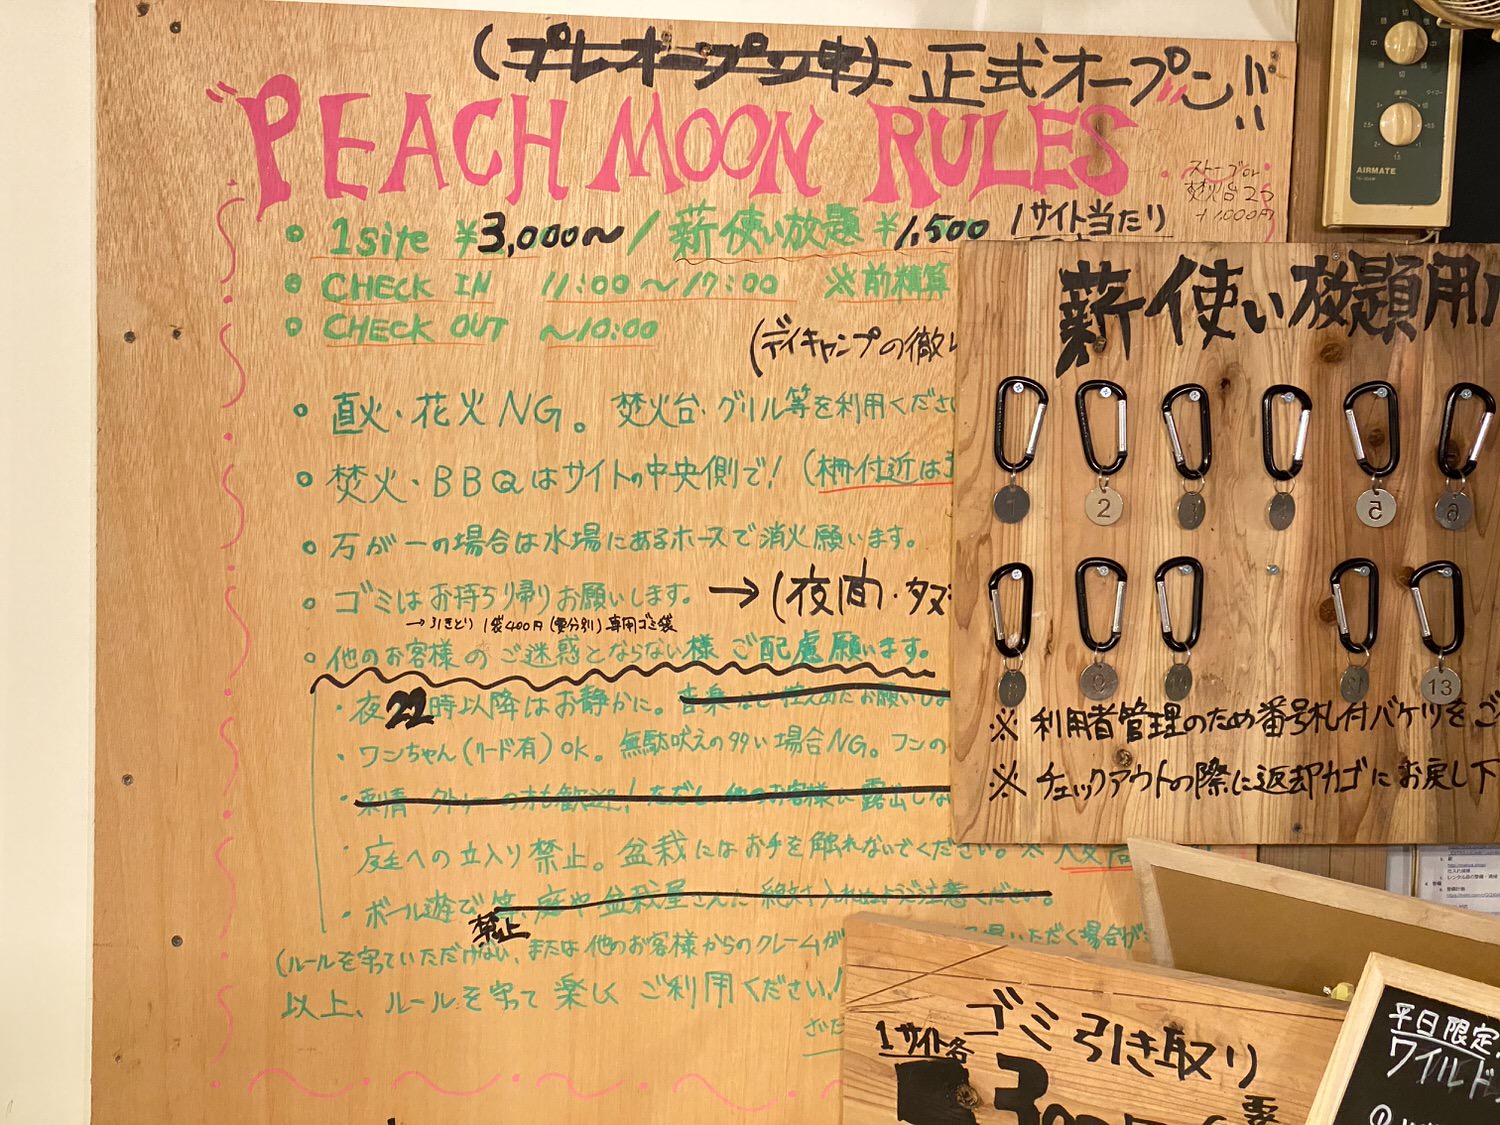 (プレオープン中) 正式オープン!!
"PEACH MOON RULES
ストーブor
焚火台2つ
+1,000円
1site ¥3,000〜 / 薪使い放題 ¥1,500 / 1サイト当たり
CHECK IN 11:00〜17:00 ※前精算
CHECK OUT 〜10:00
(デイキャンプの徹
直火・花火NG。焚火台・グリル等を利用くださ
焚火・BBQはサイトの中央側で! (柵付近は
万が一の場合は水場にあるホースで消火願います。
ゴミはお持ち帰りお願いします。→(夜間・
→引きとり 1袋400円(要分別)専用ゴミ袋
他のお客様のご迷惑とならない様ご配慮願います。
・夜22時以降はお静かに。音楽など控えめにお願いしま
・ワンちゃん(リード有)OK。無駄吠えの多い場合NG。フンの
・刺青・タトゥーの方も歓迎! ただし他のお客様に露出しな
・庭への立入り禁止。盆栽にはお手を触れないでください。※
・ボール遊び等、庭や盆栽屋さんに絶対入れぬようご注意ください。
禁止
(ルールを守っていただけない、または他のお客様からのクレームが
いただく場合が
以上、ルールを守って楽しくご利用ください!
薪使い放題用
1
2
3
4
5
6
8
9
12
13
※利用者管理のため番号札付バケツをご
※チェックアウトの際に返却カゴにお戻し下
ゴミ引き取り
1サイト各
平日限定
ワイルド
AIRMATE